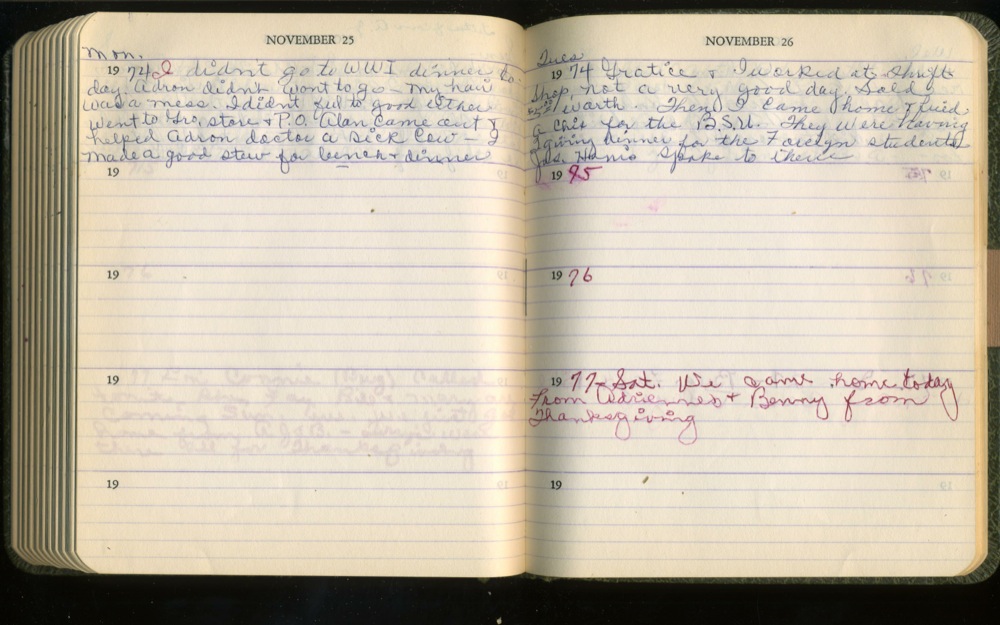 NOVEMBER 25
Mon.
1974 I didnt go to WWI dinner to-
day. Adron didn't want to go - My hair
was a mess. I didnt feel to good either
went to Gro, store & P.O. Alan came out &
helped Adron doctor a sick cow - I
made a good stew for dinner
19
19 76
19
19
NOVEMBER 26
Tues
1974 Gratice & I worked at Thrift
Shop, not a very good day. Sold
worth. Then I came home & fried
a chic for the B.S.U. They were having
giving dinner for the Foreign students
spoke to them
19 75
19 76
19 77- Sat. We came home today
from Adriennes & Benny from
Thanksgiving
19